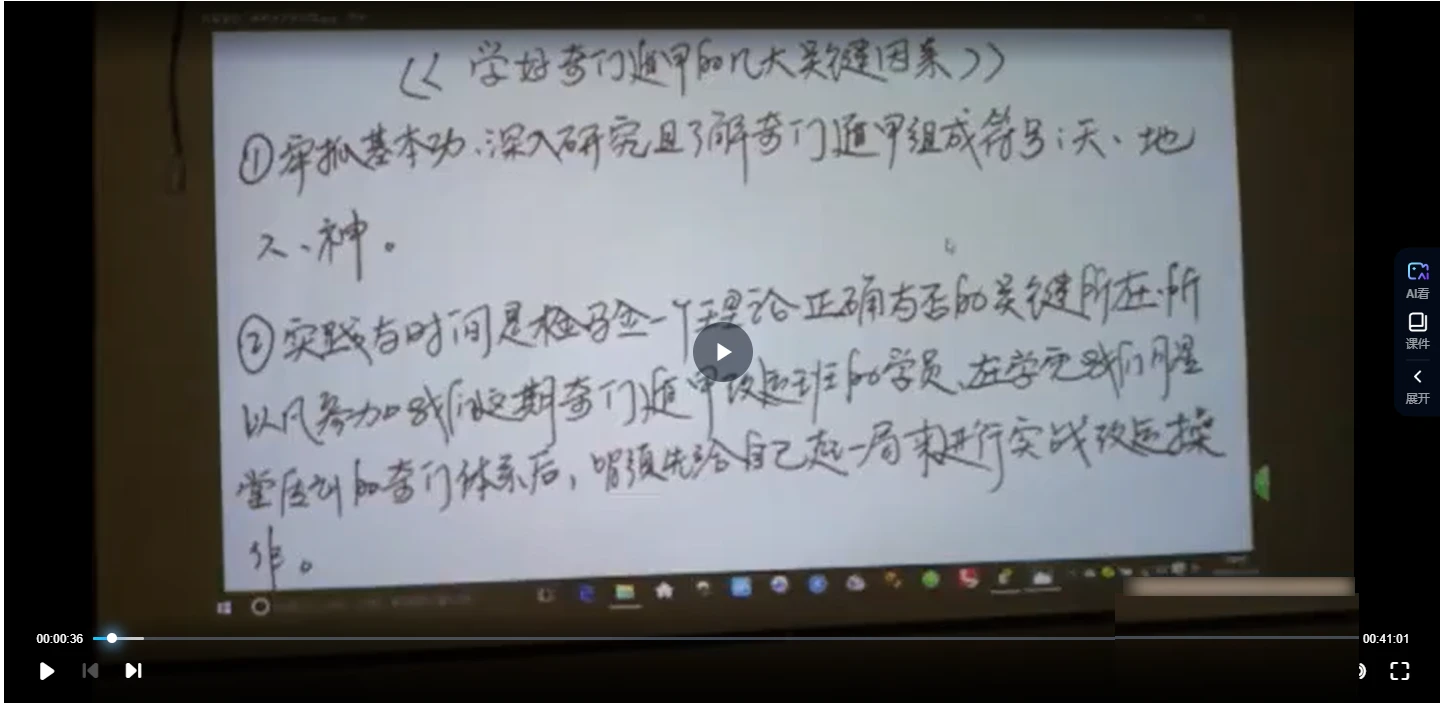 《学好奇门遁甲的几大关键因素》
①牢抓基本功、深入研究且了解奇门遁甲组成符号:天、地
人、神。
②实践与时间是检验一个理论正确与否的关键所在.所
以凡参加我们这期奇门遁甲改运班的学员、在学完我们
堂 的奇门体系后, 须先给自己起一局来进行实战改运操
作。
AI看
课件
展开
00:00:36
00:41:01